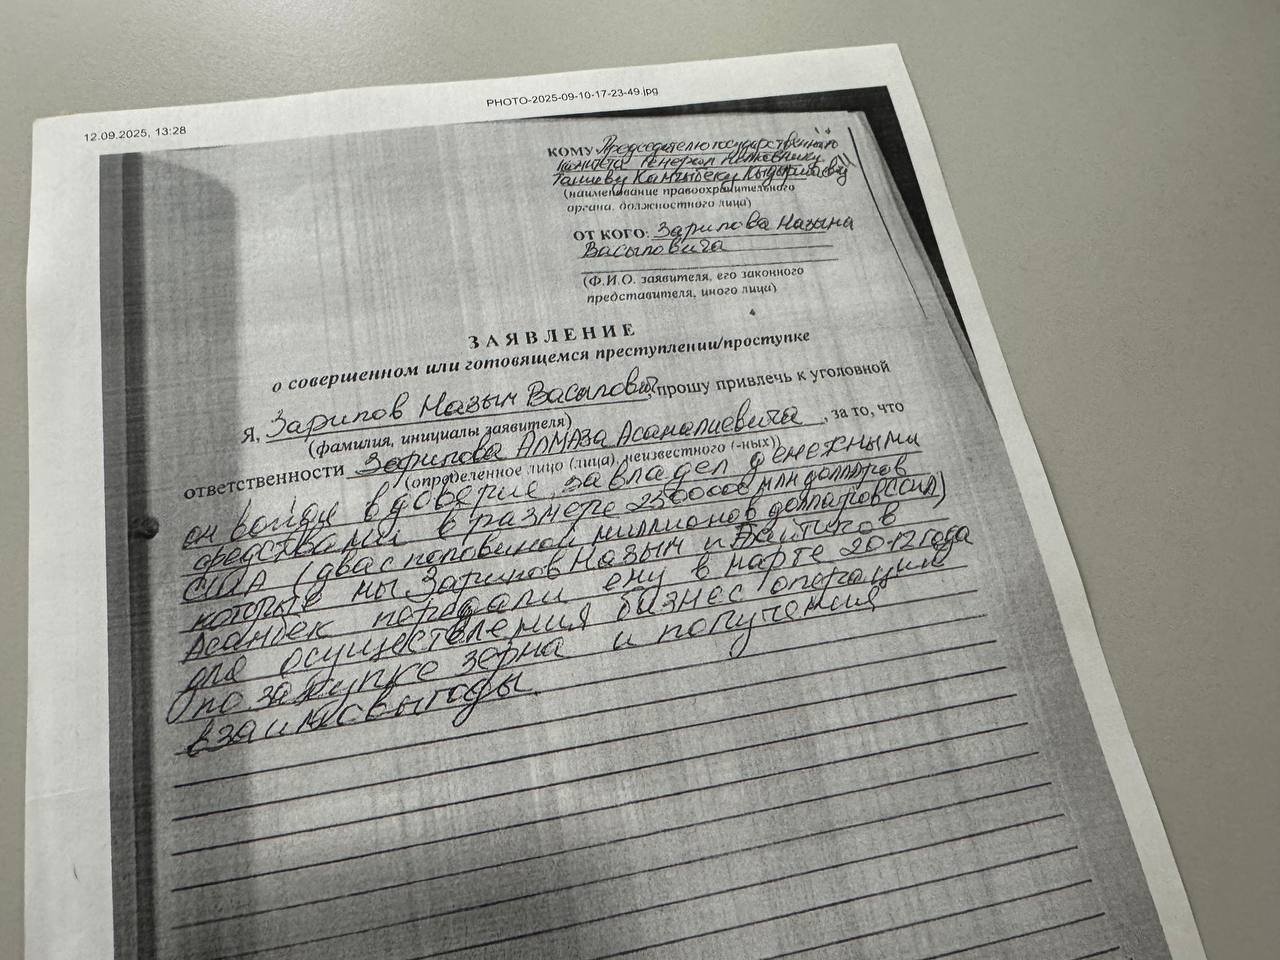 PHOTO-2025-09-10-17-23-49.jpg
12.09.2025, 13:28
КОМУ Председателю государственного
комитета Генерал полковнику
Ташиеву Камчыбеку Кыдыршаевичу
(наименование правоохранительного
органа, должностного лица)
ОТ КОГО: Зарипова Назыма
Васыповича
(Ф.И.О. заявителя, его законного
представителя, иного лица)
ЗАЯВЛЕНИЕ
о совершенном или готовящемся преступлении/проступке
Я, Зарипов Назым Васыпович, прошу привлечь к уголовной
(фамилия, инициалы заявителя)
ответственности Зарипова АЛМАЗА Асаналиевича, за то, что
(определенное лицо (лица), неизвестного (-ных))
он войдя в доверие, завладел денежными
средствами в размере 2500000 млн долларов
США (два с половиной миллионов долларов США)
которые мы Зарипов Назым и
Асанбек передали ему в марте 2012 года
для осуществления бизнес операции
по закупке зерна и получения
взаимовыгоды.